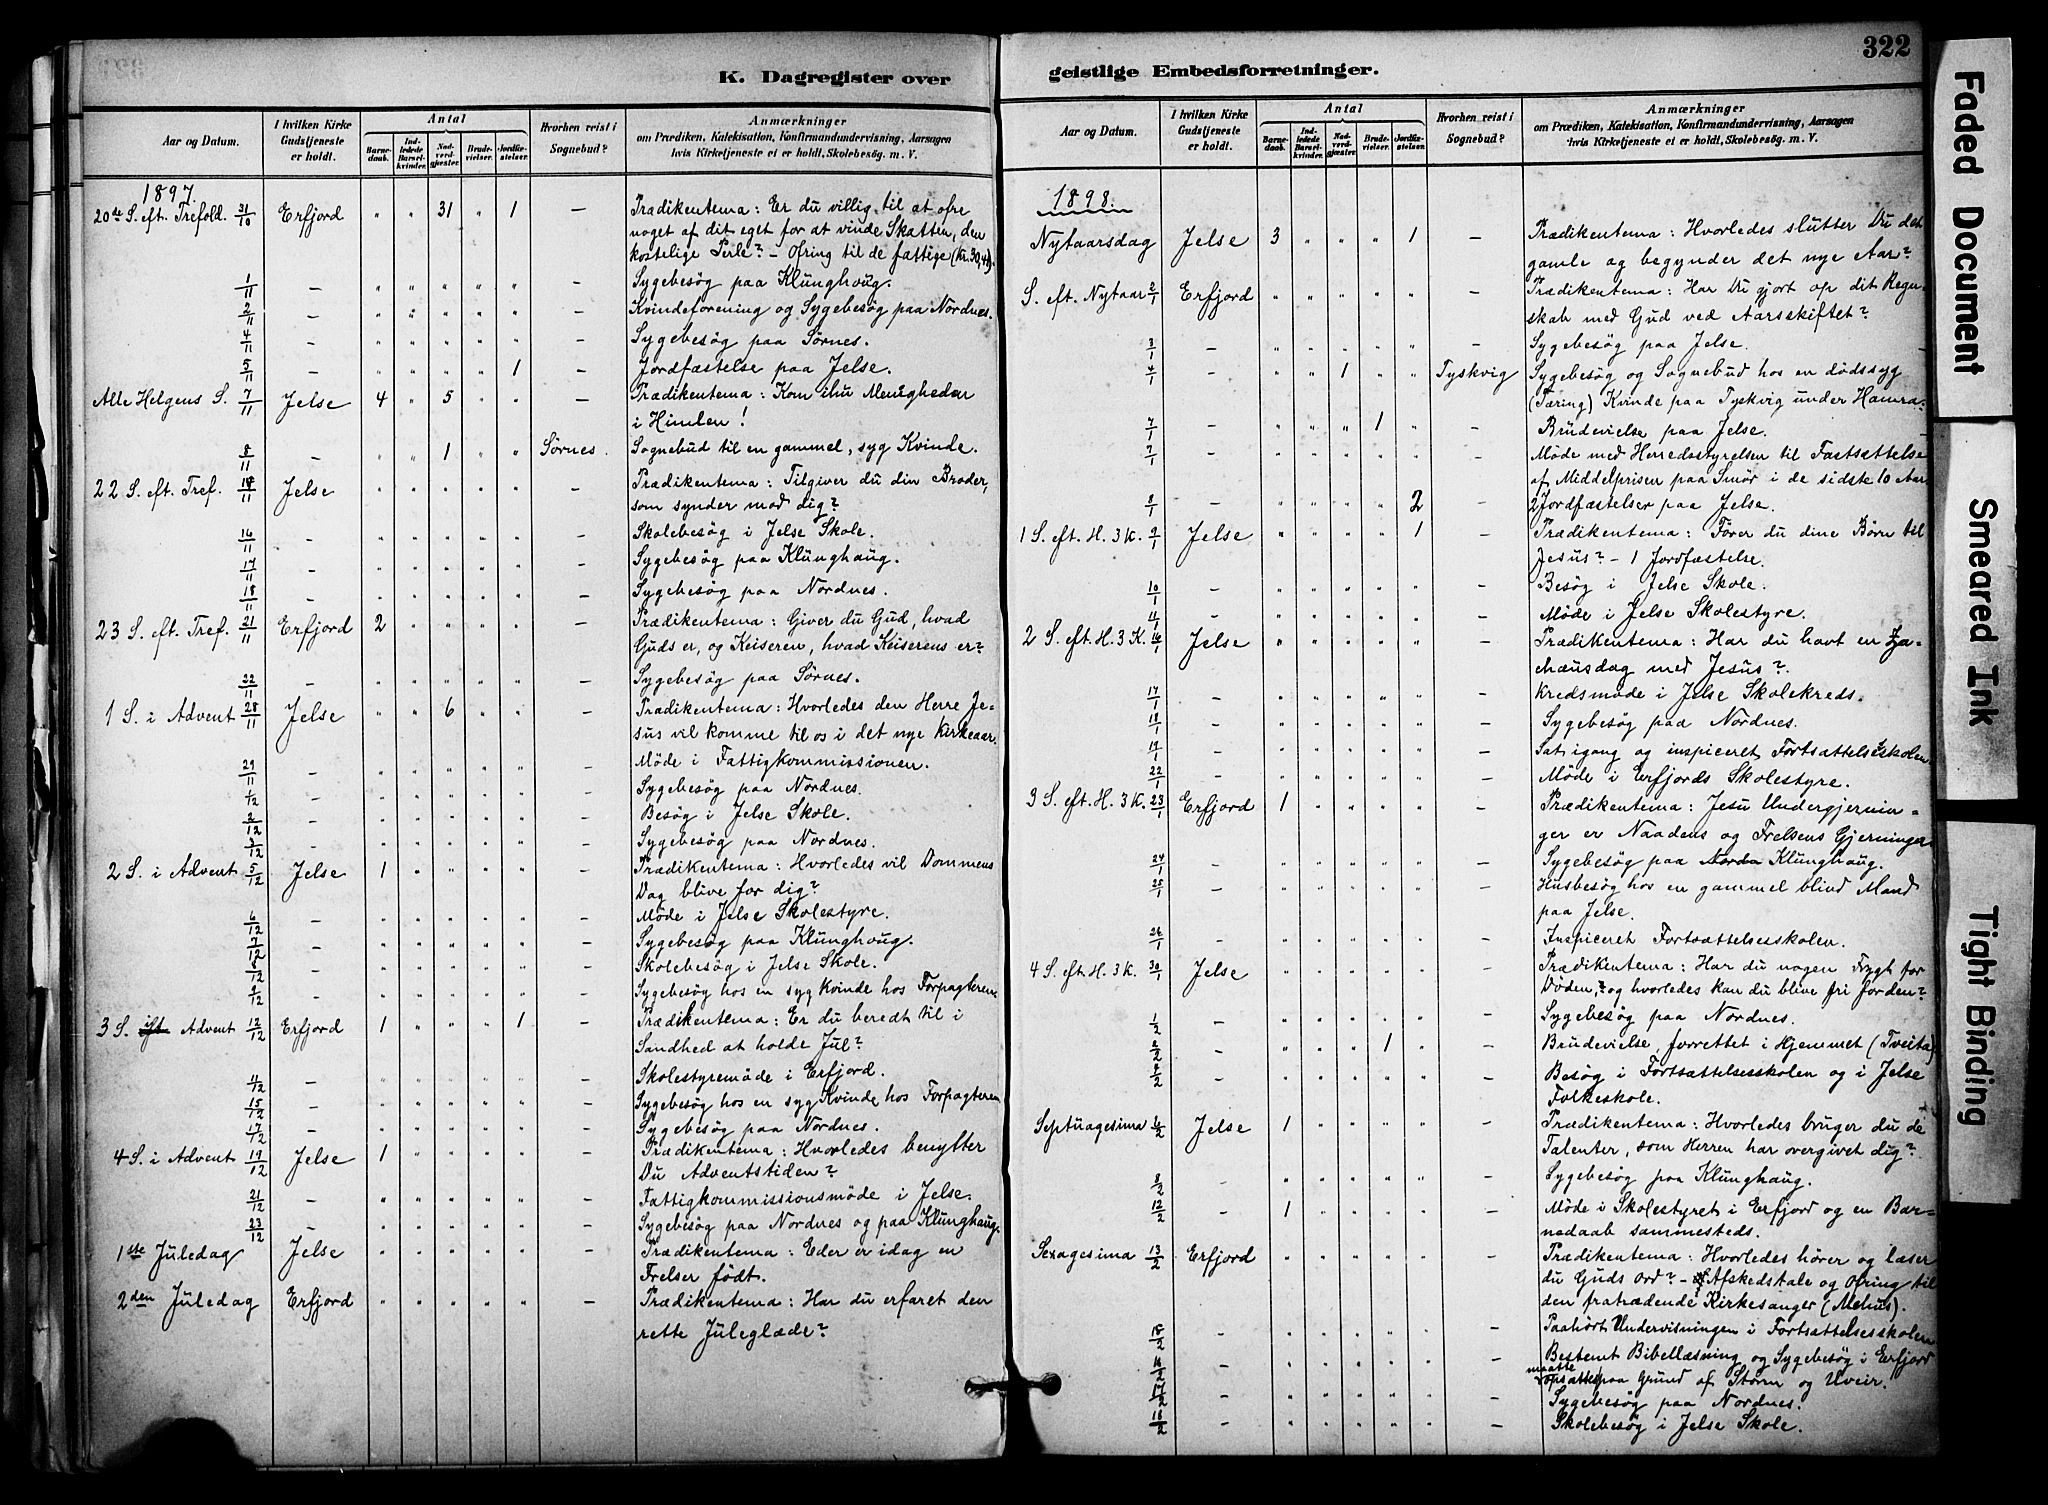 322
K. Dagregister over
Aar og Datum.
I hvilken Kirke Gudstjeneste er holdt.
Antal
Barne-daab.
Ind-ledede Barsel-kvinder.
Nad-verd-gjester.
Brude-vielser.
Jordfæ-stelser.
Hvorhen reist i Sognebud?
Anmærkninger
om Prædiken, Katekisation, Konfirmandundervisning, Aarsagen
hvis Kirketjeneste ei er holdt, Skolebesög. m. V.
1897.
20de S. eft. Trefold. 31/10 Erfjord " " 31 " 1 – Prædikentema: Er du villig til at ofre
noget af dit eget for at vinde Skatten, den
kostelige Perle? – Ofring til de fattige (Kr. 30,41).
1/11 – " " " " " – Sygebesög paa Klunghoug.
2/11 – " " " " " – Kvindeforening og Sygebesög paa Nordnes.
4/11 – " " " " " – Sygebesög paa Sörnes.
5/11 – " " " " 1 – Jordfæstelse paa Jelse.
Alle Helgens S. 7/11 Jelse 4 " 5 " " – Prædikentema: Kom ihu Menigheden
i Himlen!
8/11 – " " 1 " " Sörnes. Sognebud til en gammel, syg Kvinde.
22 S. eft. Tref. 14/11 Jelse " " " " " – Prædikentema: Tilgiver du din Broder,
som synder mod dig?
16/11 – " " " " " – Skolebesög i Jelse Skole.
17/11 – " " " " " – Sygebesög paa Klunghaug.
18/11 – " " " " " – Sygebesög paa Nordnes.
23 S. eft. Tref. 21/11 Erfjord 2 " " " " – Prædikentema: Giver du Gud, hvad
Guds er, og Keiseren, hvad Keiserens er?
22/11 – " " " " " – Sygebesög paa Sörnes.
1 S. i Advent 28/11 Jelse " " 6 " " – Prædikentema: Hvorledes den Herre Je-
sus vil komme til os i det nye Kirkeaar.
29/11 – " " " " " – Möde i Fattigkommissionen.
1/12 – " " " " " – Sygebesög paa Nordnes.
2/12 – " " " " " – Besög i Jelse Skole.
3/12 – " " " " " – Sygebesög paa Nordnes.
2 S. i Advent 5/12 Jelse 1 " " " " – Prædikentema: Hvorledes vil Dommens
Dag blive for dig?
6/12 – " " " " " – Möde i Jelse Skolestyre.
7/12 – " " " " " – Sygebesög paa Klunghoug.
8/12 – " " " " " – Skolebesög i Jelse Skole.
9/12 – " " " " " – Sygebesög hos en syg Kvinde hos Forpagteren.
3 S. ift Advent 12/12 Erfjord 1 " " " 1 – Prædikentema: Er du beredt til i
Sandhed at holde Jul?
– " " " " " – Skolestyremöde i Erfjord.
15/12 – " " " " " – Sygebesög hos en syg Kvinde hos Forpagteren
17/12 – " " " " " – Sygebesög paa Nordnes.
4 S. i Advent 19/12 Jelse 1 " " " " – Prædikentema: Hvorledes benytter
Du Adventstiden?
21/12 – " " " " " – Fattigkommissionsmöde i Jelse.
23/12 – " " " " " – Sygebesög paa Nordnes og paa Klunghaug.
1ste Juledag Jelse " " " " " – Prædikentema: Eder er idag en
Frelser födt.
2den Juledag Erfjord " " " " " – Prædikentema: Har du erfaret den
rette Juleglæde?
geistlige Embedsforretninger.
Aar og Datum.
I hvilken Kirke Gudstjeneste er holdt.
Antal
Barne-daab.
Ind-ledede Barsel-kvinder.
Nad-verd-gjester.
Brude-vielser.
Jordfæ-stelser.
Hvorhen reist i Sognebud?
Anmærkninger
om Prædiken, Katekisation, Konfirmandundervisning, Aarsagen
hvis Kirketjeneste ei er holdt, Skolebesög. m. V.
1898.
Nytaarsdag Jelse 3 " " " 1 – Prædikentema: Hvorledes slutter Du det
gamle og begynder det nye Aar?
S. eft. Nytaar 2/1 Erfjord " " " " " – Prædikentema: Har Du gjort op dit Regn-
skab med Gud ved Aarsskiftet?
3/1 – " " " " " – Sygebesög paa Jelse.
4/1 – " " 1 " " Tyskvig Sygebesög og Sognebud hos en dødssyg
(Tæring) Kvinde paa Tyskvig under Hamra-
7/1 – " " " 1 " – Brudevielse paa Jelse.
7/1 – " " " " " – Möde med Herredsstyrelsen til Fastsættelse
af Middelprisen paa Smör i de sidste 10 Aar.
8/1 " " " " 2 – 2 Jordfæstelser paa Jelse.
1 S. eft. H. 3 K. 9/1 Jelse " " " " 1 – Prædikentema: Förer du dine Börn til
Jesus? – 1 Jordfæstelse.
10/1 – " " " " " – Besög i Jelse Skole.
11/1 – " " " " " – Möde i Jelse Skolestyre.
2 S. eft. H. 3 K. 16/1 Jelse " " " " " – Prædikentema: Har du havt en Za-
chæusdag med Jesus?
17/1 – " " " " " – Kredsmöde i Jelse Skolekreds.
18/1 – " " " " " – Sygebesög paa Nordnes.
19/1 – " " " " " – Sat igang og inspiceret Fortsættelsesskolen
22/1 – " " " " " – Möde i Erfjords Skolestyre.
3 S. eft. H. 3 K. 23/1 Erfjord 1 " " " " – Prædikentema: Jesu Undergjernin-
ger er Naadens og Frelsens Gjerninger
24/1 – " " " " " – Sygebesög paa Nordn Klunghaug.
25/1 – " " " " " – Husbesög hos en gammel blind Mand
paa Jelse.
26/1 – " " " " " – Inspiceret Fortsættelsesskolen.
4 S. eft. H. 3 K. 30/1 Jelse " " " " " – Prædikentema: Har du nogen Frygt for
Döden, og hvorledes kan du blive fri for den?
1/2 – " " " " " – Sygebesög paa Nordnes.
2/2 – " " " 1 " – Brudevielse, forrettet i Hjemmet (Tveita)
– " " " " " – Besög i Fortsættelsesskolen og i Jelse
Folkeskole.
Septuagesima 6/2 Jelse 1 " " " " – Prædikentema: Hvorledes bruger du de
Talenter, som Herren har overgivet dig?
8/2 – " " " " " – Sygebesög paa Klunghaug.
12/2 – 1 " " " " – Möde i Skolestyret i Erfjord og en Bar-
nedaab sammesteds.
Sexagesima 13/2 Erfjord " " " " " – Prædikentema: Hvorledes hörer og læser
du Guds Ord? – Afskedstale og Ofring til
den fratrædende Kirkesanger (Mehus).
15/2 – " " " " " – Paahört Undervisningen i Fortsættelsesskolen
16/2 – " " " " " – Bestemt Bibellæsning og Sygebesög i Erfjord
maatte opsættes paa Grund af Storm og Uveir.
17/2 – " " " " " – Sygebesög paa Nordnes.
18/2 – " " " " " – Skolebesög i Jelse Skole.
Faded Document
Smeared Ink
Tight Binding